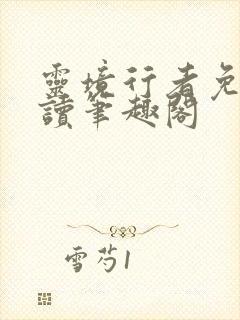 靈境行者免
讀筆趣閣
雪芍1